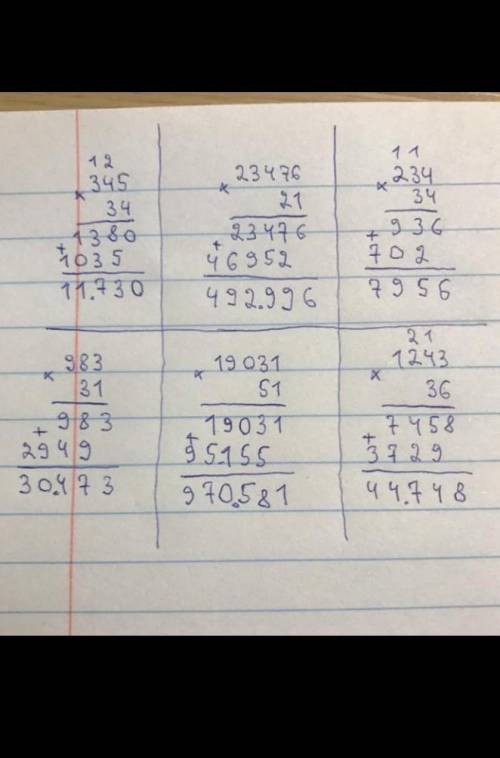 12
345
x
34
1380
+
1035
11.730
23476
x
21
23476
+
46952
492.996
11
234
x
34
936
+
702
7956
983
x
31
983
+
2949
30.473
19031
x
51
19031
+
95155
970.581
21
1243
x
36
7458
+
3729
44.748